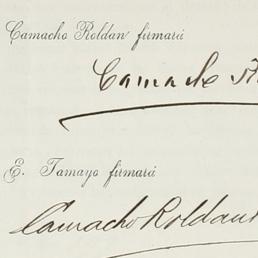 Camacho Roldan firmará
Camacho
E. Tamayo firmará
Camacho Roldan